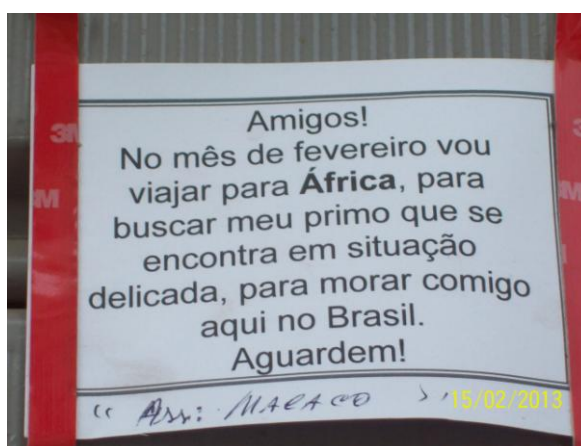 Amigos!
No mês de fevereiro vou
viajar para África, para
buscar meu primo que se
encontra em situação
delicada, para morar comigo
aqui no Brasil.
Aguardem!
" Ass: MACACO "
15/02/2013
3M
M
3
M